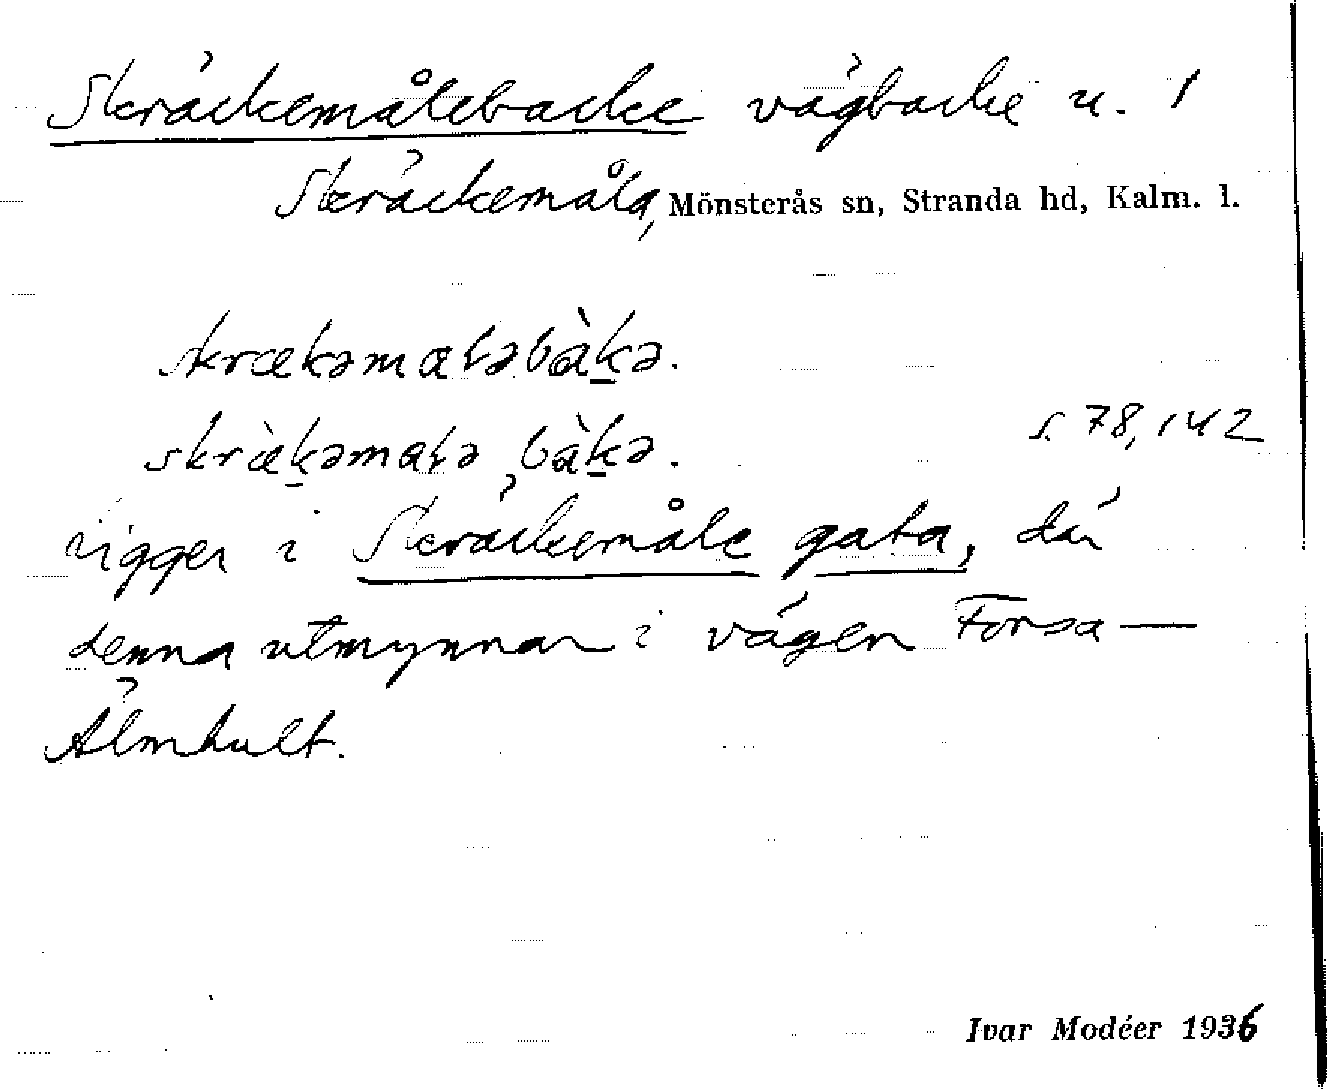 Skräckemålebacke vägbacke u. 1
Skräckemåla, Mönsterås sn, Stranda hd, Kalm. l.
skrækəmalabàkə.
skræ̀kəmala bàkə.
s. 78, 142
Ligger i Skräckemåle gata, där
denna utmynnar i vägen Forsa—
Älmhult.
Ivar Modéer 1936